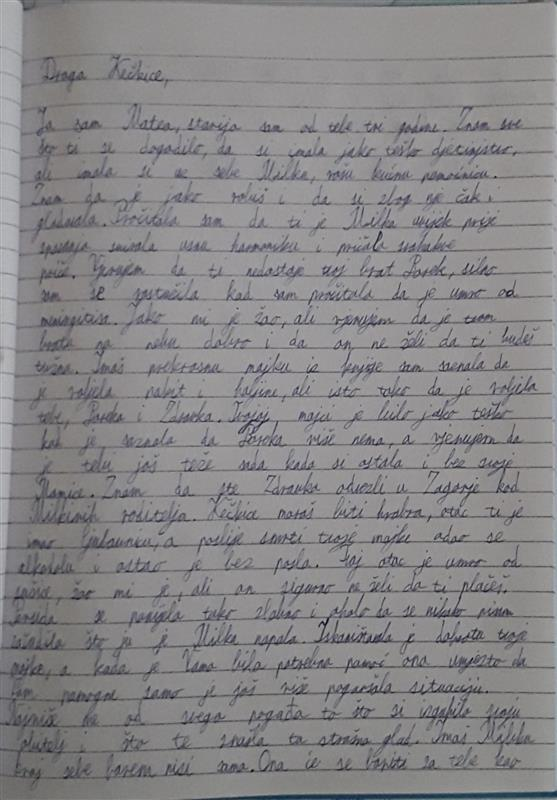 Draga Kečkice,
Ja sam Matea, starija sam od tebe tri godine. Znam sve
što ti se dogodilo, da si imala jako teško djetinjstvo,
ali imala si uz sebe Milku, vašu kućnu pomoćnicu.
Znam da je jako voliš i da si zbog nje čak i
gladovala. Pročitala sam da ti je Milka uvijek prije
spavanja svirala usnu harmoniku i pričala svakakve
priče. Vjerujem da ti nedostaje tvoj brat Perek, silno
sam se rastužila kad sam pročitala da je umro od
meningitisa. Jako mi je žao, ali vjerujem da je tvom
bratu na nebu dobro i da on ne želi da ti budeš
tužna. Imaš prekrasnu majku iz knjige sam saznala da
je voljela nakit i haljine, ali isto tako da je voljela
tebe, i Zdravka. Tvojoj majci je bilo jako teško
kad je saznala da više nema, a vjerujem da
je tebi još teže sada kada si ostala i bez svoje
Mamice. Znam da ste Zdravka odvezli u Zagorje kod
Milkinih roditelja. Kečkice moraš biti hrabra, otac ti je
imao ljubavnicu, a poslije smrti tvoje majke odao se
alkoholu i ostao je bez posla. Tvoj otac je umro od
žao mi je, ali on sigurno ne želi da ti plačeš.
se ponijela tako zlobno i oholo da se nikako nisam
začudila što ju je Milka napala. je dobrotu tvoje
majke, a kada je Vama bila potrebna pomoć ona umjesto da
vam pomogne samo je još više pogoršala situaciju.
Najviše me od svega pogađa to što si izgubila svoju
obitelj i što te snašla ta strašna glad. Imaš Milku
kraj sebe barem nisi sama. Ona će se boriti za tebe kao